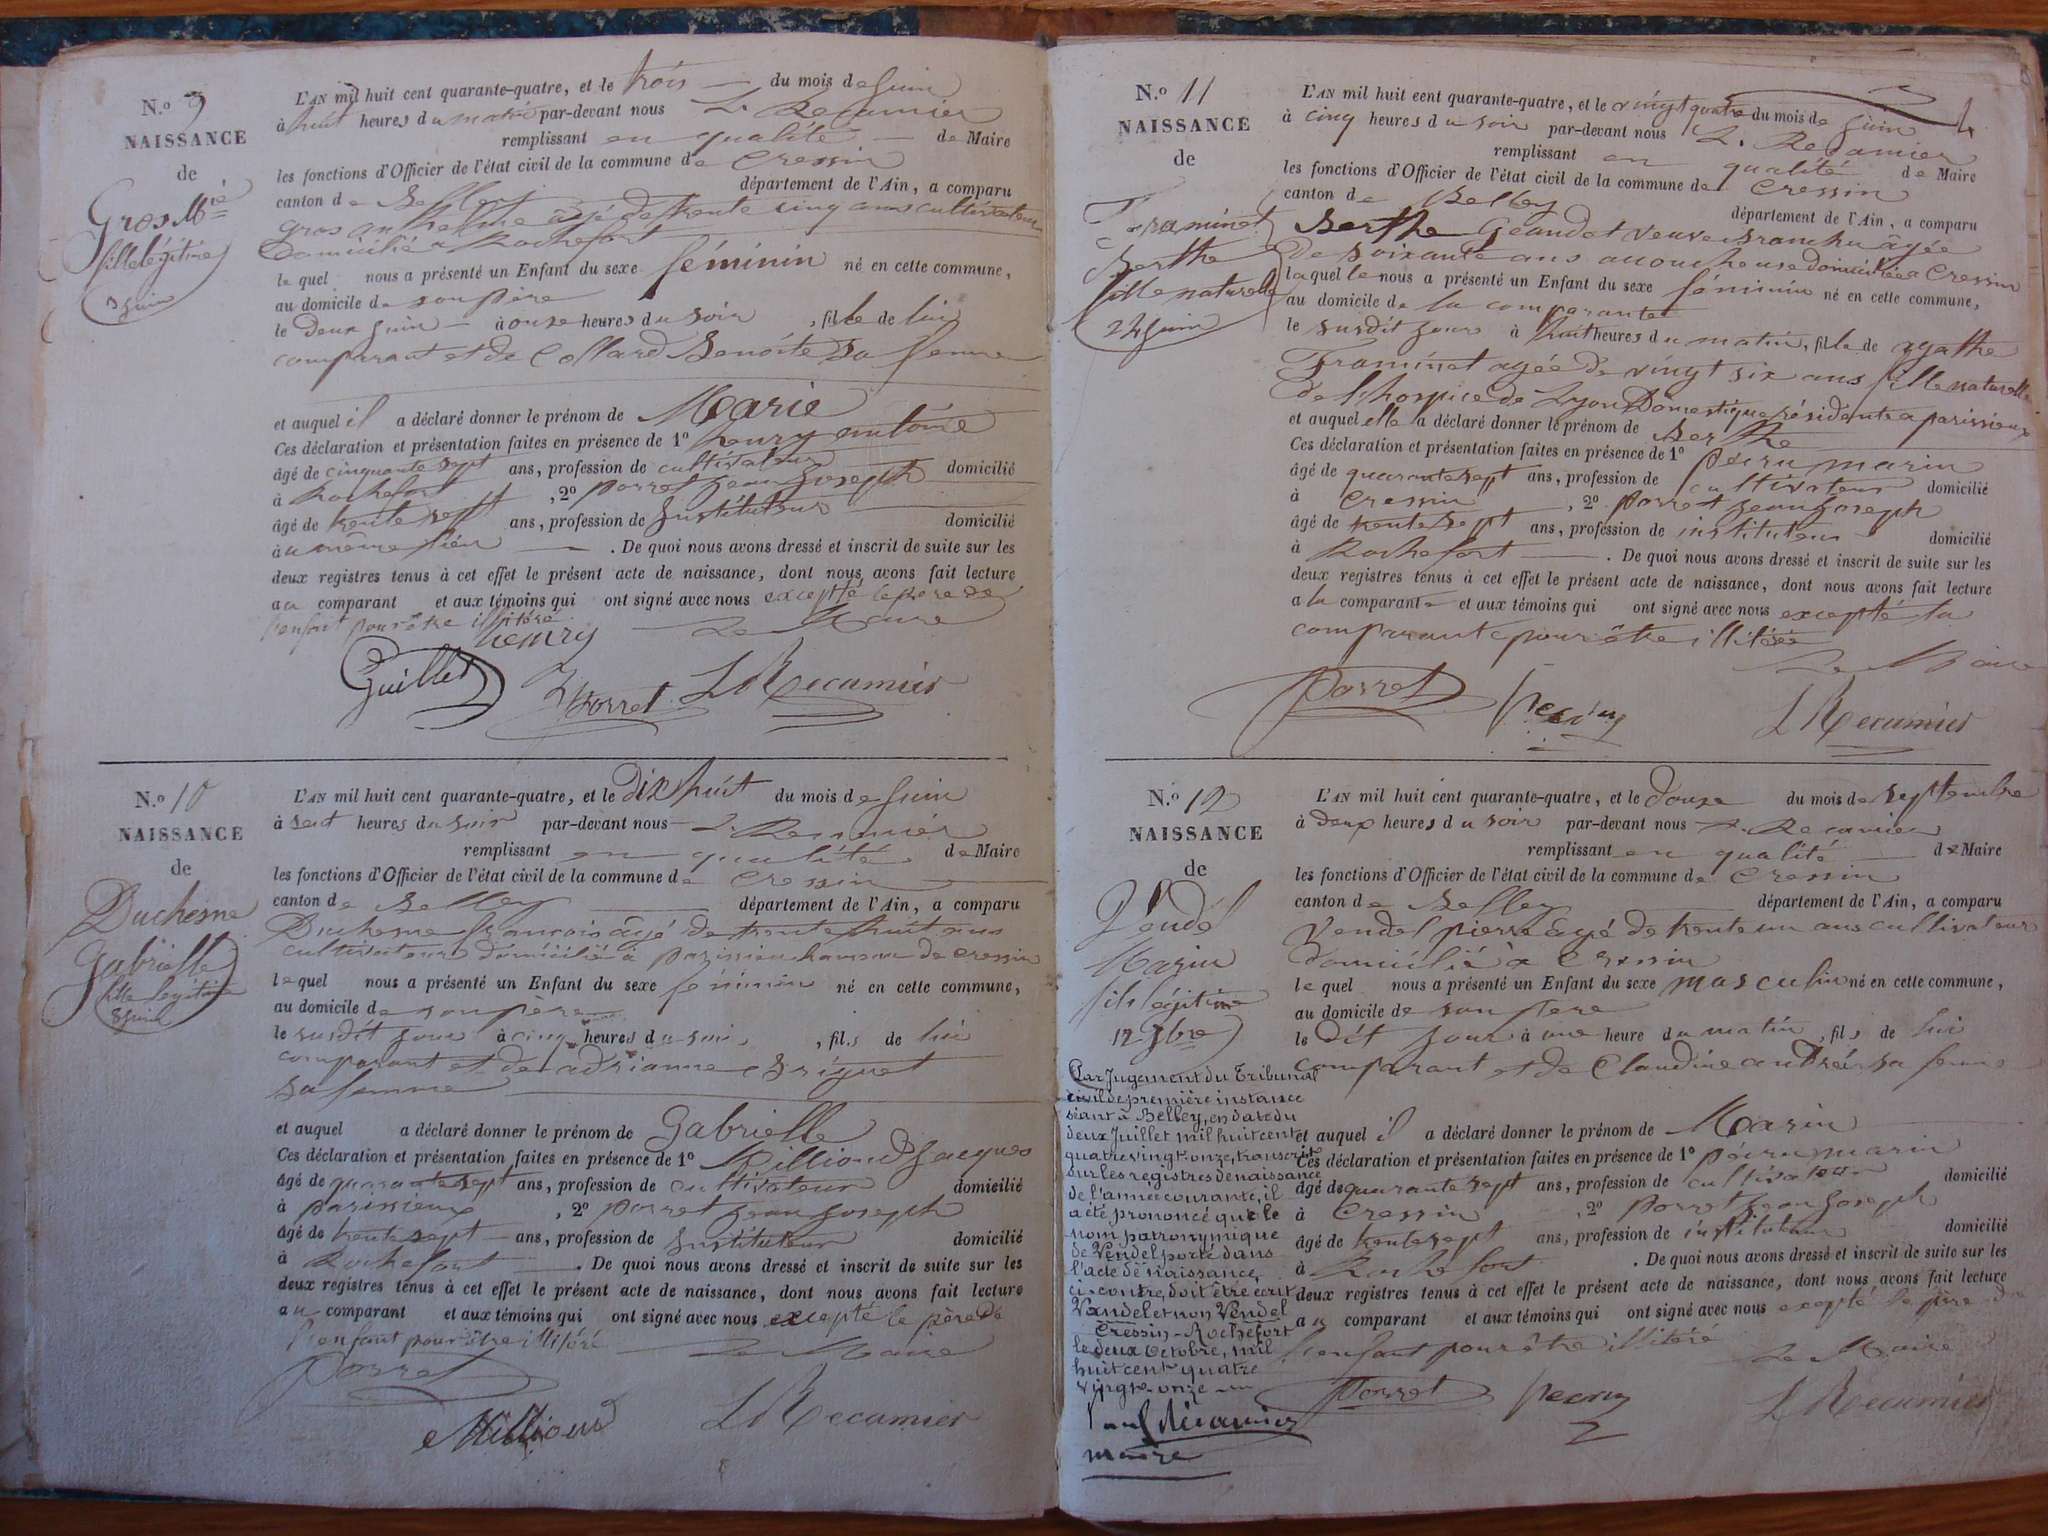 N.º 9
NAISSANCE
de
Gros Mie
fille légitime
3 juin
L'AN mil huit cent quarante-quatre, et le trois du mois de juin
à huit heures du matin par-devant nous L. Recamier
remplissant en qualité de Maire
les fonctions d'Officier de l'état civil de la commune de Cressin
canton de Belley département de l'Ain, a comparu
gros anthelme âgé de trente cinq ans cultivateur
domicilié à Rochefort
lequel nous a présenté un Enfant du sexe féminin né en cette commune,
au domicile de son père
le deux juin à onze heures du soir, fille de lui
comparant et de Collard Benoite sa femme
et auquel il a déclaré donner le prénom de Marie
Ces déclaration et présentation faites en présence de 1º henry antoine
âgé de cinquante sept ans, profession de cultivateur domicilié
à Rochefort, 2º porret jean joseph
âgé de trente sept ans, profession de instituteur domicilié
à u même lieu. De quoi nous avons dressé et inscrit de suite sur les
deux registres tenus à cet effet le présent acte de naissance, dont nous avons fait lecture
au comparant et aux témoins qui ont signé avec nous excepté le père de
l'enfant pour être illitéré
henry Le Maire
Porret L Recamier
N.º 10
NAISSANCE
de
Duchesne
Gabrielle
fille légitime
8 juin
L'AN mil huit cent quarante-quatre, et le dix huit du mois de juin
à sept heures du soir par-devant nous L. Recamier
remplissant en qualité de Maire
les fonctions d'Officier de l'état civil de la commune de Cressin
canton de Belley département de l'Ain, a comparu
Duchesne françois âgé de trente huit ans
cultivateur domicilié à parissieu hameau de cressin
lequel nous a présenté un Enfant du sexe féminin né en cette commune,
au domicile de son père
le susdit jour à cinq heures du soir, fils de lui
comparant et de adrianne Briguet
sa femme
et auquel a déclaré donner le prénom de Gabrielle
Ces déclaration et présentation faites en présence de 1º Milliond Jacques
âgé de quarante sept ans, profession de cultivateur domicilié
à parissieux, 2º porret jean joseph
âgé de trente sept ans, profession de instituteur domicilié
à Rochefort. De quoi nous avons dressé et inscrit de suite sur les
deux registres tenus à cet effet le présent acte de naissance, dont nous avons fait lecture
au comparant et aux témoins qui ont signé avec nous excepté le père de
l'enfant pour être illitéré Le Maire
Porret
Milliond L Recamier
N.º 11
NAISSANCE
de
Framinet
Berthe
fille naturelle
24 juin
L'AN mil huit cent quarante-quatre, et le vingt quatre du mois de juin
à cinq heures du soir par-devant nous L. Recamier
remplissant en qualité de Maire
les fonctions d'Officier de l'état civil de la commune de Cressin
canton de Belley département de l'Ain, a comparu
Berthe Geandet veuve âgée
de soixante ans accoucheuse domiciliée a Cressin
laquelle nous a présenté un Enfant du sexe féminin né en cette commune,
au domicile de la comparante
le susdit jour à huit heures du matin, fille de agathe
Framinet agée de vingt six ans fille naturelle
de l'hospice de Lyon Domestique résidente a parissieux
et auquel elle a déclaré donner le prénom de Berthe
Ces déclaration et présentation faites en présence de 1º marin
âgé de quarante sept ans, profession de cultivateur domicilié
à Cressin, 2º porret jean joseph
âgé de trente sept ans, profession de instituteur domicilié
à Rochefort. De quoi nous avons dressé et inscrit de suite sur les
deux registres tenus à cet effet le présent acte de naissance, dont nous avons fait lecture
a la comparante et aux témoins qui ont signé avec nous excepté la
comparante pour être illitérée
Le Maire
Porret L Recamier
N.º 12
NAISSANCE
de
Vendel
Marin
fils légitime
12 7bre
L'AN mil huit cent quarante-quatre, et le douze du mois de septembre
à deux heures du soir par-devant nous L. Recamier
remplissant en qualité de Maire
les fonctions d'Officier de l'état civil de la commune de Cressin
canton de Belley département de l'Ain, a comparu
Vendel pierre âgé de trente un ans cultivateur
domicilié à Cressin
lequel nous a présenté un Enfant du sexe masculin né en cette commune,
au domicile de son père
le dit jour à une heure du matin, fils de lui
comparant et de Claudine sa femme
et auquel il a déclaré donner le prénom de Marin
Ces déclaration et présentation faites en présence de 1º marin
âgé de quarante sept ans, profession de cultivateur domicilié
à Cressin, 2º porret jean joseph
âgé de trente sept ans, profession de instituteur domicilié
à Rochefort. De quoi nous avons dressé et inscrit de suite sur les
deux registres tenus à cet effet le présent acte de naissance, dont nous avons fait lecture
au comparant et aux témoins qui ont signé avec nous excepté le père de
l'enfant pour être illitéré
Le Maire
Porret L Recamier
Par Jugement du Tribunal
civil de première instance
séant à Belley, en date du
deux Juillet mil huit cent
quatre vingt onze, transcrit
sur les registres de naissance
de l'année courante, il
a été prononcé que le
nom patronymique
de Vendel porté dans
l'acte de naissance
ci-contre, doit être écrit
Vandel et non Vendel
Cressin-Rochefort
le deux Octobre, mil
huit cent quatre
vingt-onze
Récamier
maire